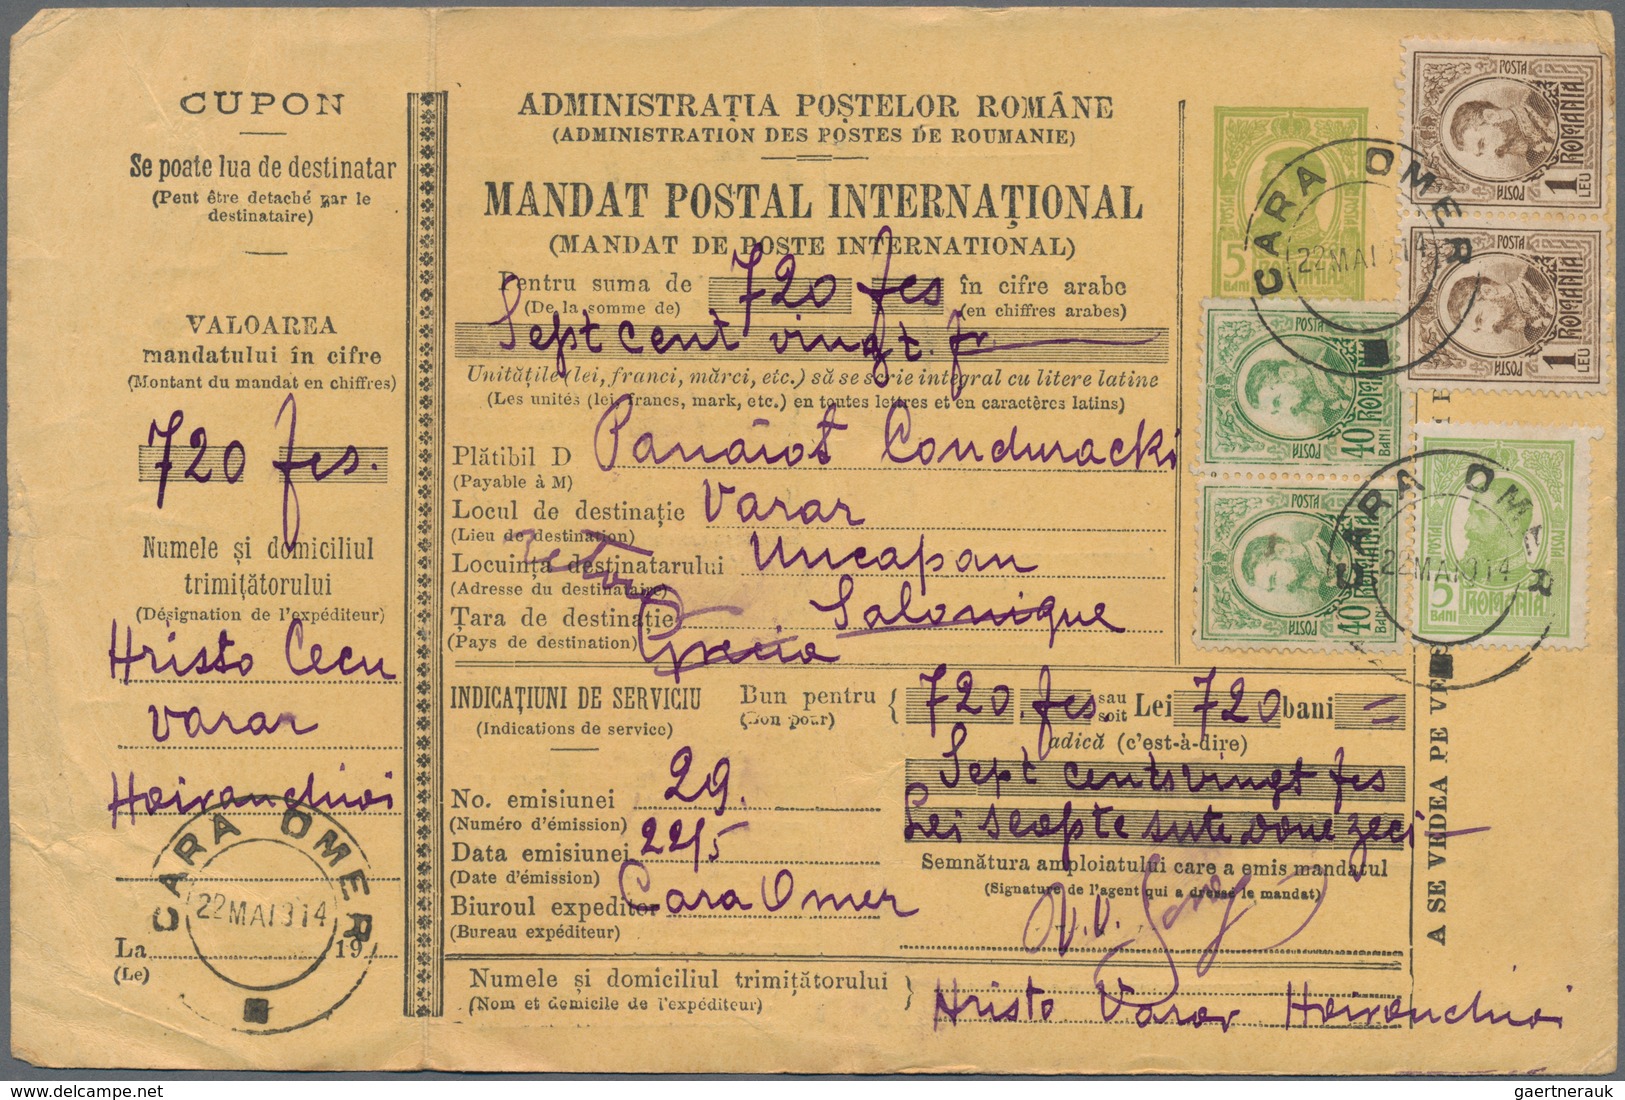 CUPON
Se poate lua de destinatar
(Peut être detaché par le
destinataire)
VALOAREA
mandatului în cifre
(Montant du mandat en chiffres)
720 fcs.
Numele și domiciliul
trimițătorului
(Désignation de l'expéditeur)
Hristo Cecu
Varar
CARA OMER
22 MAI 914
La 19
(Le)
ADMINISTRAȚIA POȘTELOR ROMÂNE
(ADMINISTRATION DES POSTES DE ROUMANIE)
MANDAT POSTAL INTERNAȚIONAL
(MANDAT DE POSTE INTERNATIONAL)
Pentru suma de 720 fcs în cifre arabe
(De la somme de) (en chiffres arabes)
Sept cent vingt fr
Unitățile (lei, franci, mărci, etc.) să se scrie integral cu litere latine
(Les unités (lei, francs, mark, etc.) en toutes lettres et en caractères latins)
Plătibil D Panaiot Conduracki
(Payable à M)
Locul de destinație Varar
(Lieu de destination)
Locuința destinatarului Uncapan
(Adresse du destinataire)
Țara de destinație Salonique
(Pays de destination) Grecia
INDICAȚIUNI DE SERVICIU
(Indications de service)
Bun pentru { 720 fcs sau Lei 720 bani =
(Bon pour) soit
adică (c'est-à-dire)
Sept cents vingt fcs
Lei seapte sute doue zeci
No. emisiunei 29.
(Numéro d'émission)
Data emisiunei 22/5
(Date d'émission)
Biuroul expeditor Cara Omer
(Bureau expéditeur)
Semnătura amploiatului care a emis mandatul
(Signature de l'agent qui a dressé le mandat)
Numele și domiciliul trimițătorului }
(Nom et domicile de l'expéditeur)
Hristo Varar
5 BANI
POSTA
ROMANIA
1 LEU
POSTA
POSTA
ROMANIA
1 LEU
POSTA
POSTA
ROMANIA
40 BANI
POSTA
POSTA
ROMANIA
40 BANI
POSTA
POSTA
5 BANI
ROMANIA
CARA OMER
22 MAI 914
CARA OMER
22 MAI 914
A SE VEDEA PE VE
www.delcampe.net
gaertnerauk